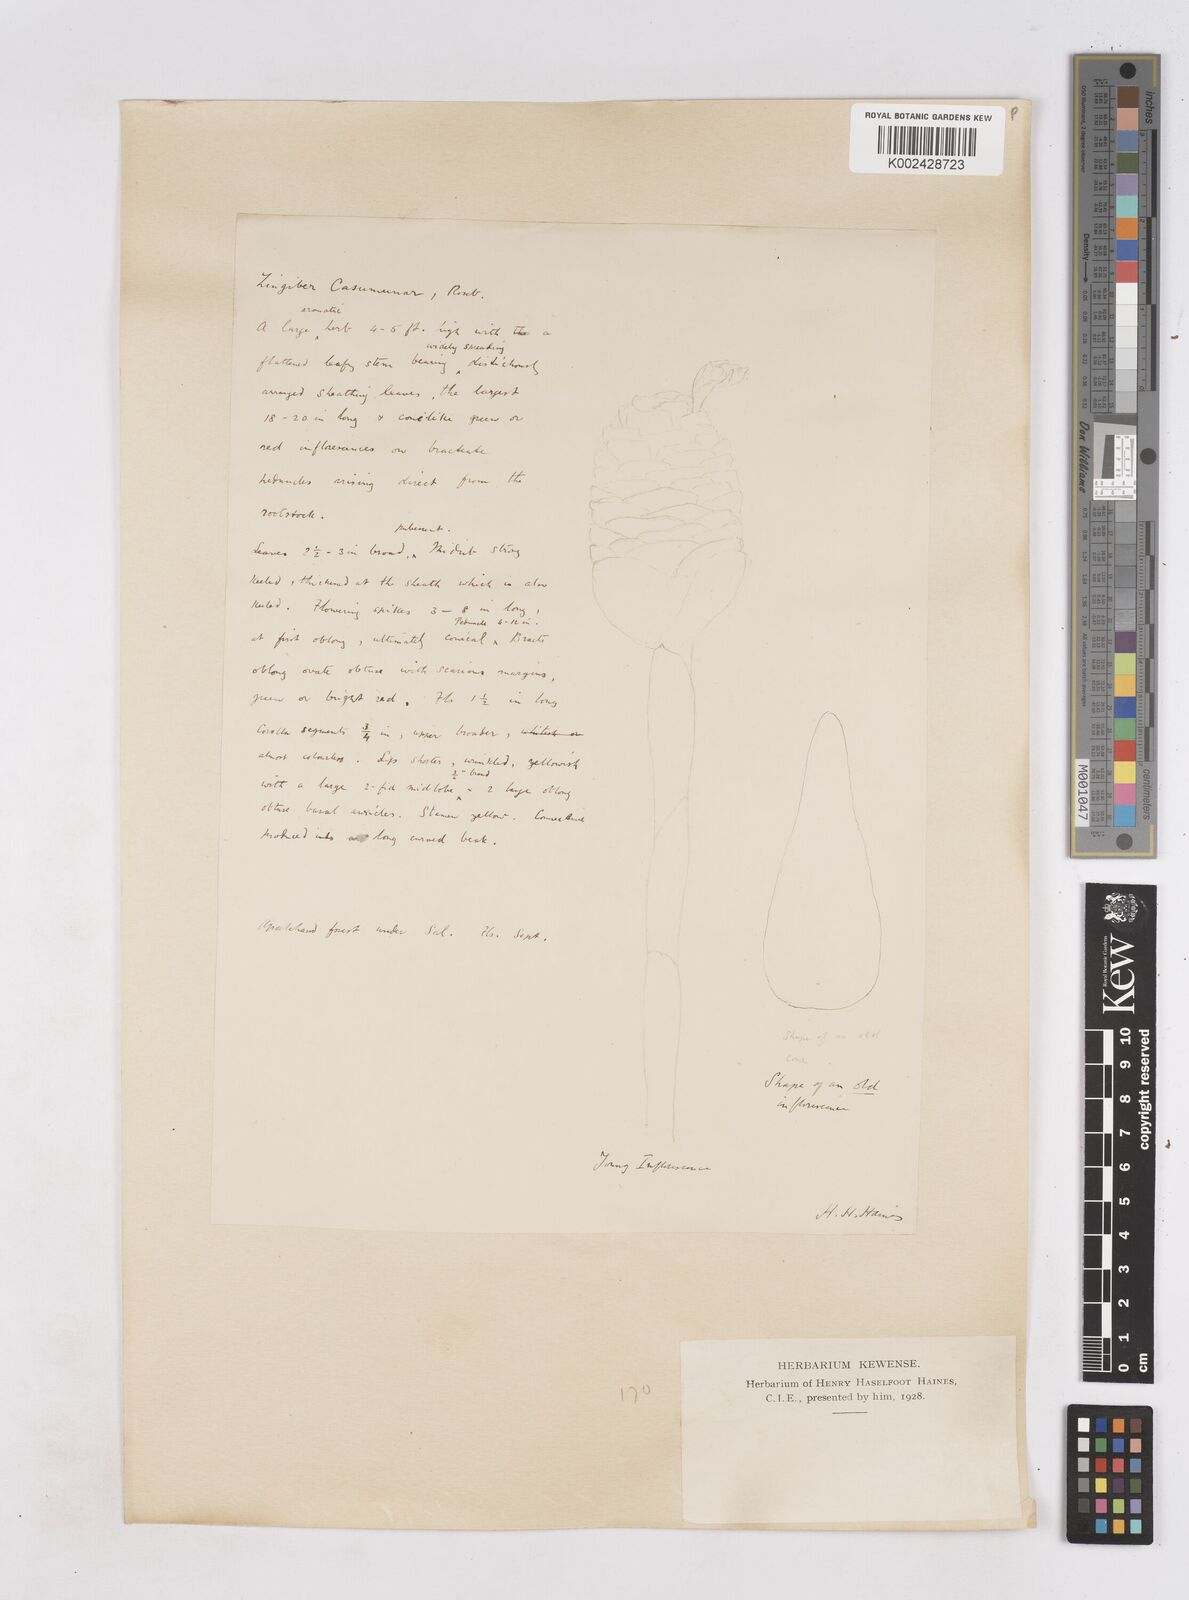 ROYAL BOTANIC GARDENS KEW
K002428723
P
Zingiber Casumunar, Roxb.
A large aromatic herb 4-5 ft. high with the a
flattened leafy stem bearing widely spreading distichously
arranged sheathing leaves, the largest
18-20 in long & conelike green or
red inflorescences on bracteate
peduncles arising direct from the
rootstock.
Leaves 2 1/2 - 3 in broad, pubescent. Midrib strong
keeled, thickened at the sheath which is also
keeled. Flowering spikes 3-8 in long,
at first oblong, ultimately conical, Peduncle 4-12 in. Bracts
oblong ovate obtuse with scarious margins,
green or bright red. Fls 1 1/2 in long
Corolla segments 3/4 in, upper broader, whitish or
almost colourless. Lip shorter, wrinkled, yellowish
with a large 2-fid midlobe 1/2" broad & 2 large oblong
obtuse basal auricles. Stamen yellow. Connective
produced into a long curved beak.
forest under Sal. Fls. Sept.
Shape of an old
cone
Shape of an old
inflorescence
Young Inflorescence
H. H. Haines
170
HERBARIUM KEWENSE.
Herbarium of HENRY HASELFOOT HAINES,
C.I.E., presented by him, 1928.
inches
centimeters
Density
Don Williams
M001047
Kew
Royal Botanic Gardens
copyright reserved
0 1 2 3 4 5 6 7 8 9 10
cm